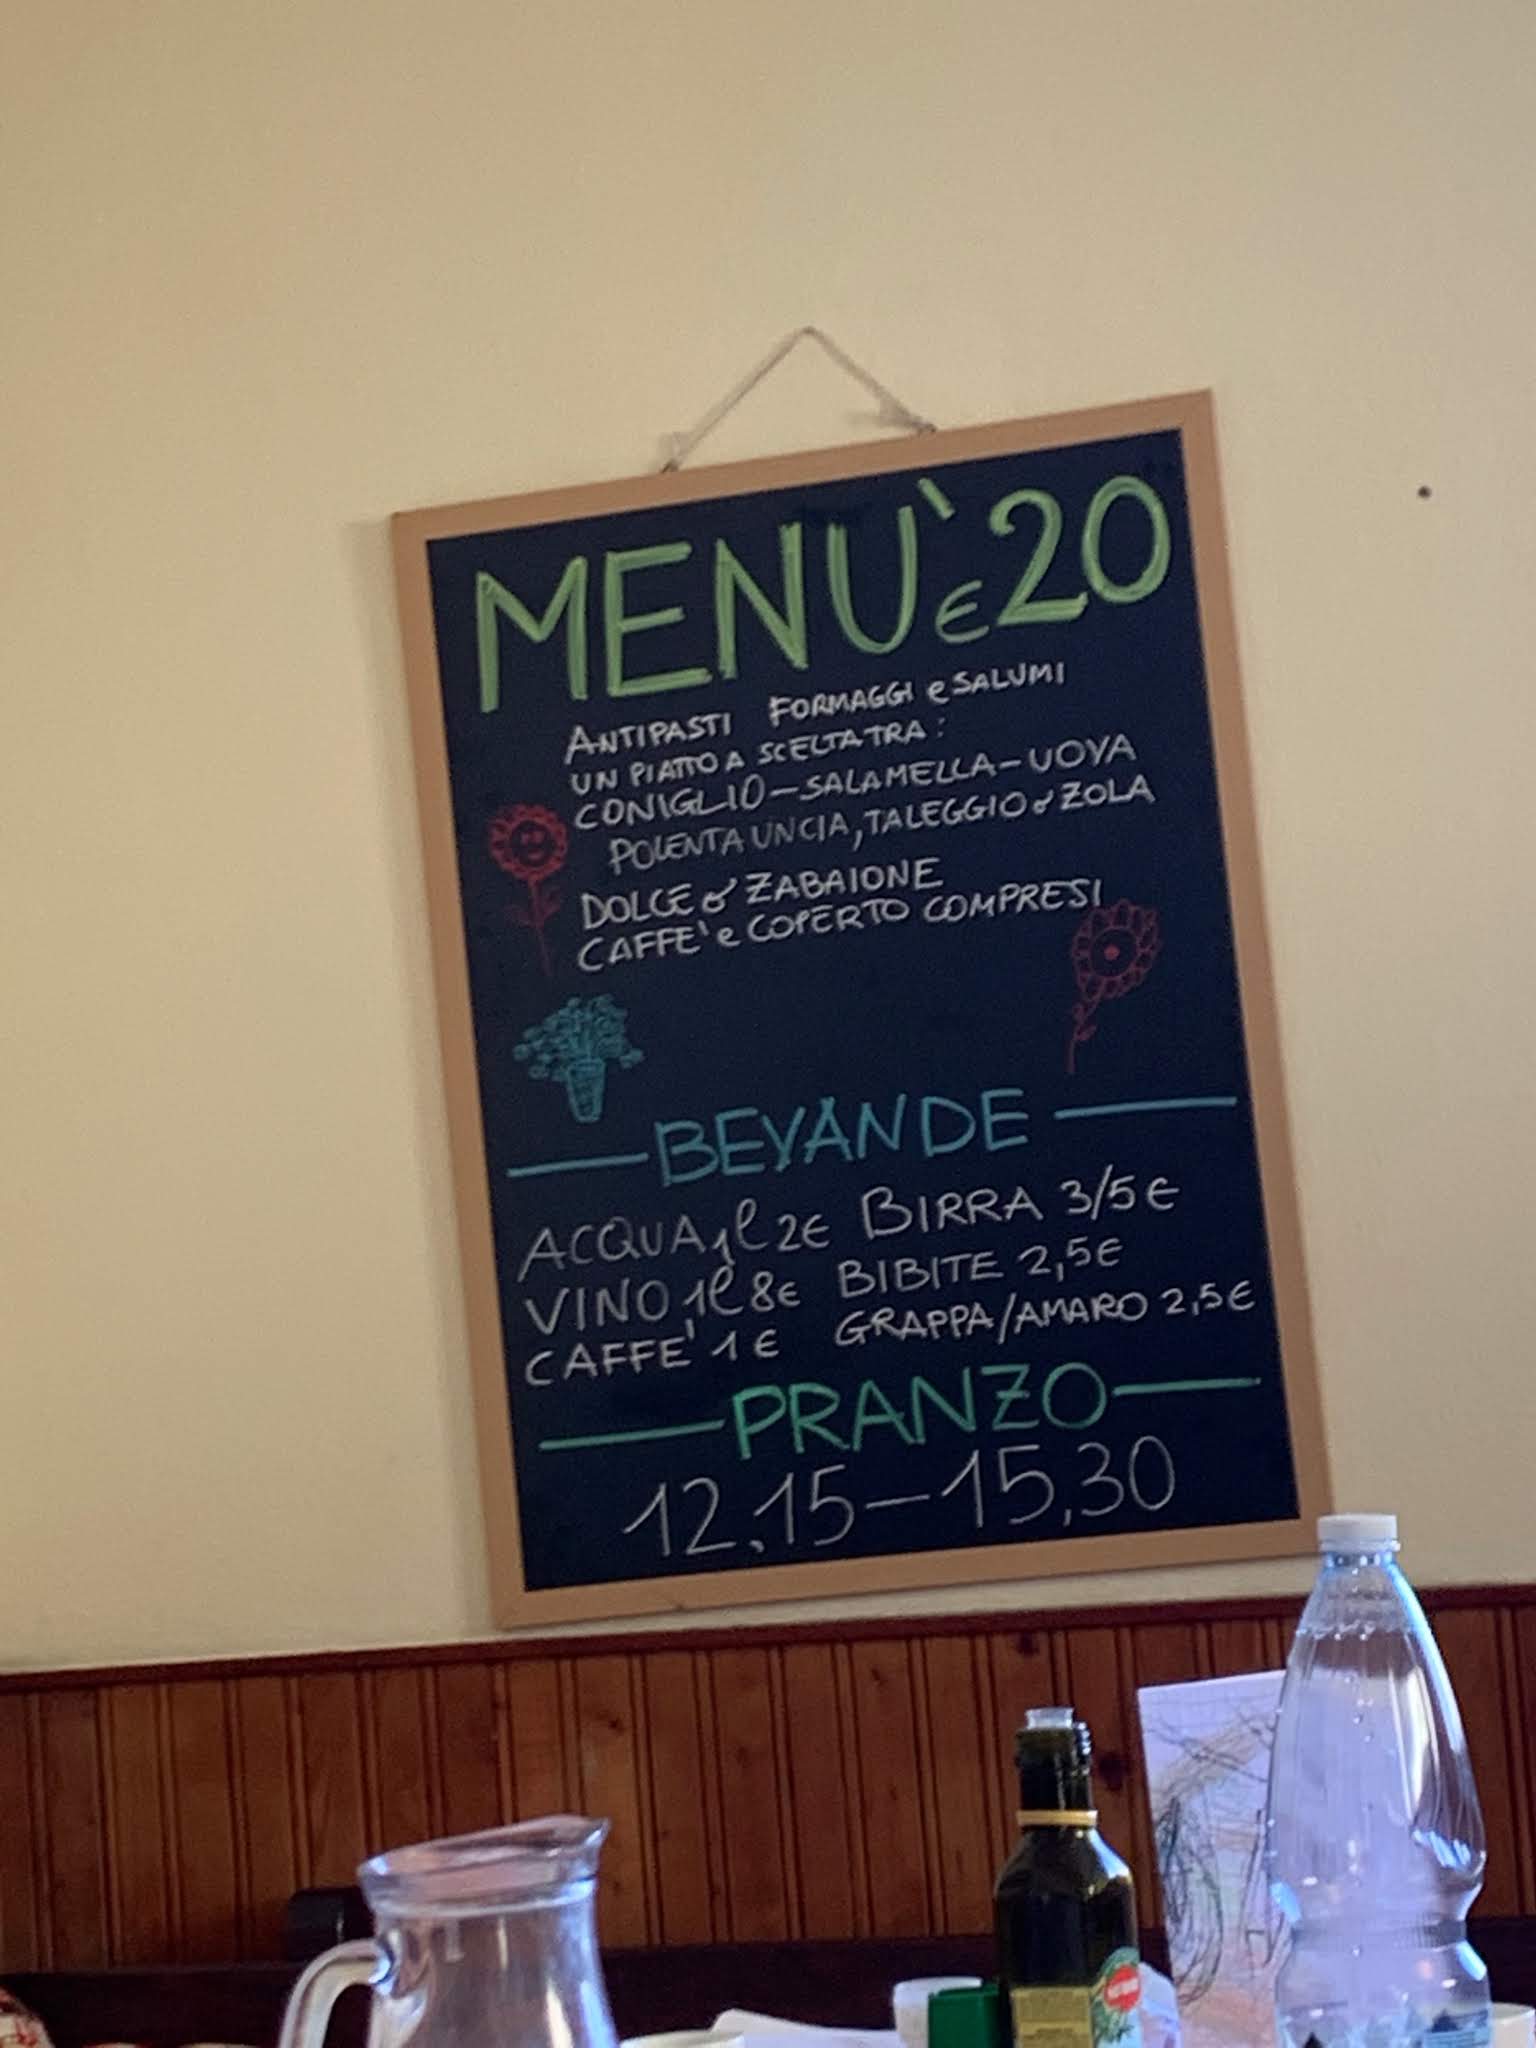 MENU' € 20
ANTIPASTI FORMAGGI e SALUMI
UN PIATTO A SCELTA TRA:
CONIGLIO - SALAMELLA - UOVA
POLENTA UNCIA, TALEGGIO o ZOLA
DOLCE o ZABAIONE
CAFFE' e COPERTO COMPRESI
BEVANDE
ACQUA 1l 2€ BIRRA 3/5€
VINO 1l 8€ BIBITE 2,5€
CAFFE' 1€ GRAPPA/AMARO 2,5€
PRANZO
12.15 - 15,30